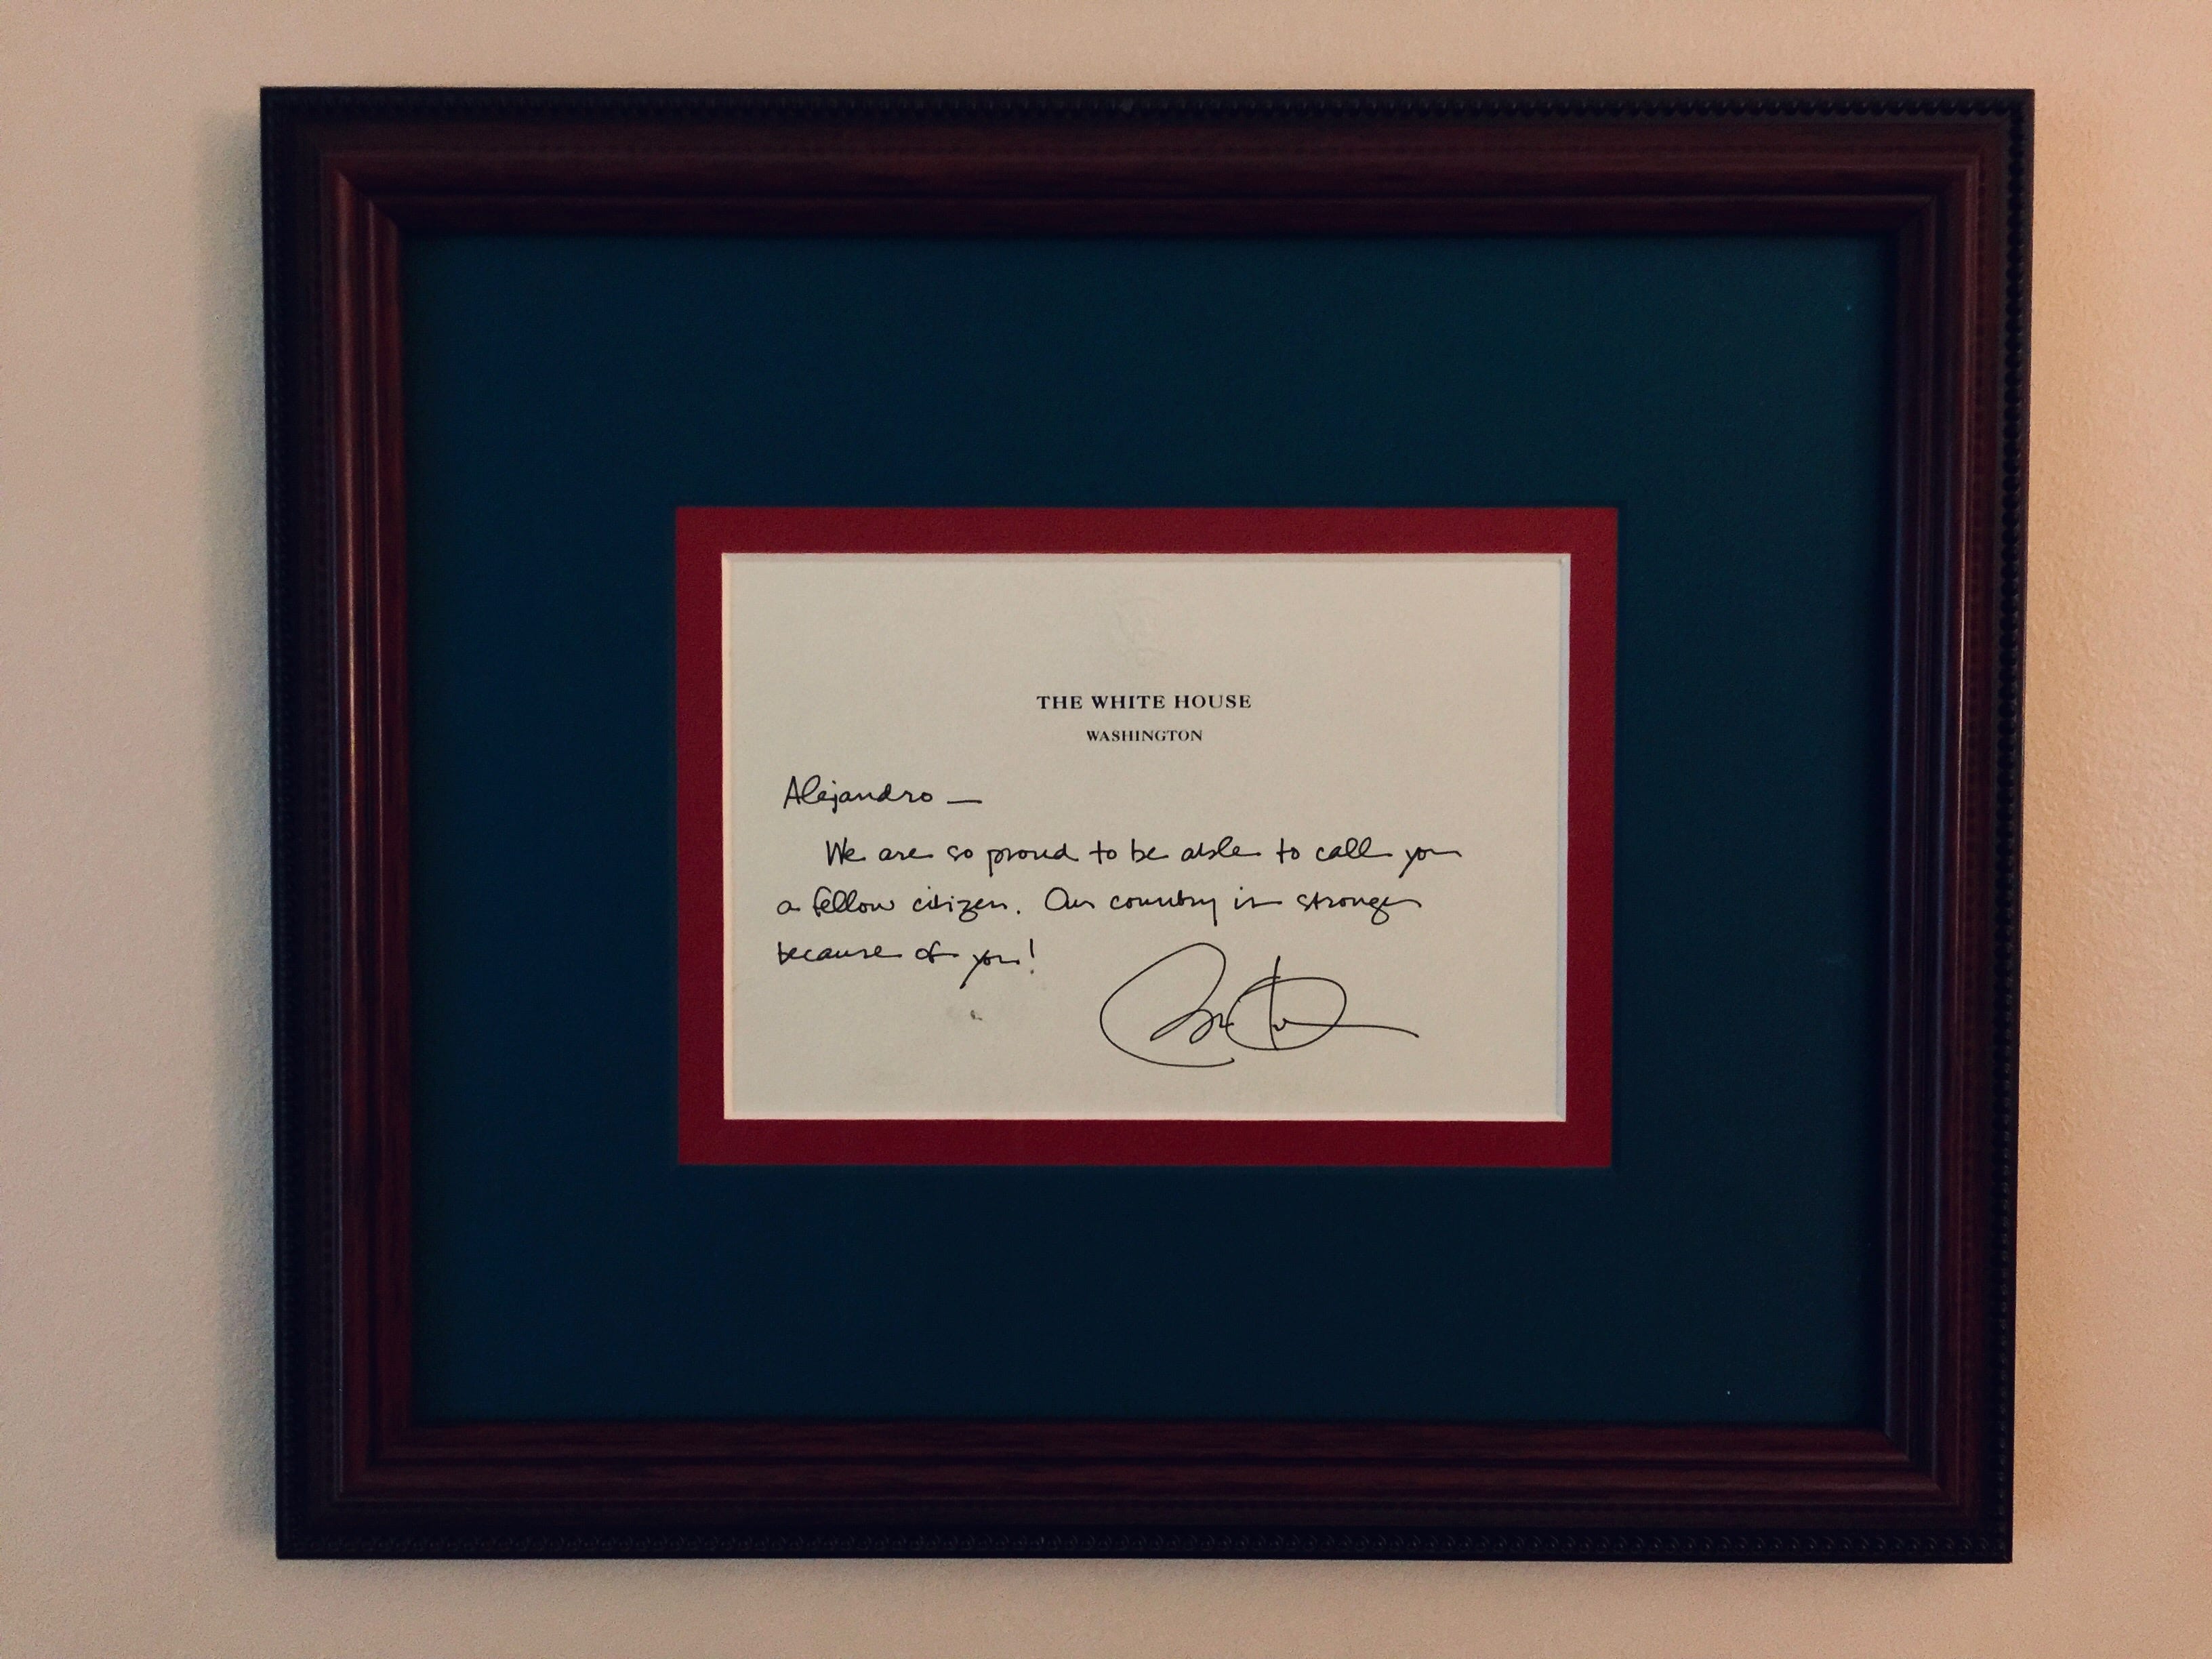 THE WHITE HOUSE
WASHINGTON
Alejandro —
We are so proud to be able to call you
a fellow citizen. Our country is stronger
because of you!